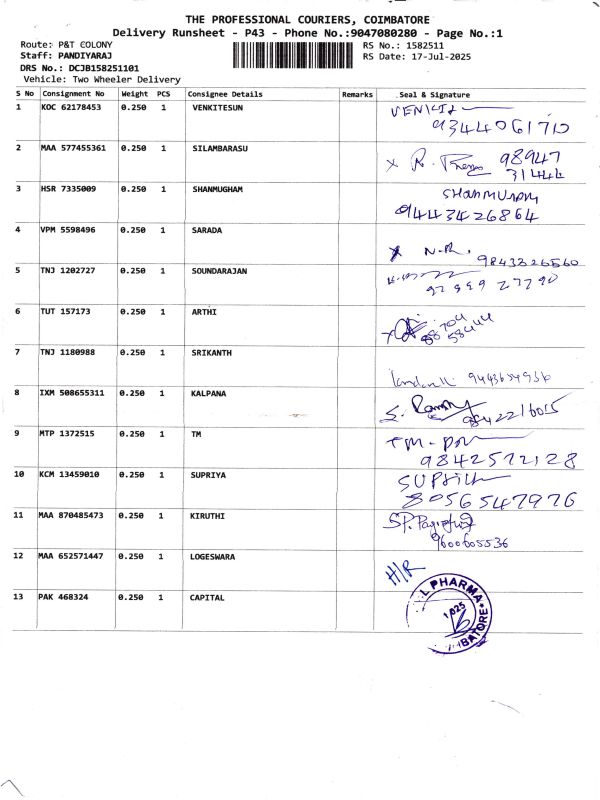 THE PROFESSIONAL COURIERS, COIMBATORE
Delivery Runsheet - P43 - Phone No.:9047080280 - Page No.:1
Route: P&T COLONY RS No.: 1582511
Staff: PANDIYARAJ RS Date: 17-Jul-2025
DRS No.: DCJB158251101
Vehicle: Two Wheeler Delivery
S No Consignment No Weight PCS Consignee Details Remarks Seal & Signature
1 KOC 62178453 0.250 1 VENKITESUN
9344061710
2 MAA 577455361 0.250 1 SILAMBARASU
x R. 98947
31444
3 HSR 7335009 0.250 1 SHANMUGHAM
9443426864
4 VPM 5598496 0.250 1 SARADA
x N.R. 9843326560
5 TNJ 1202727 0.250 1 SOUNDARAJAN
6 TUT 157173 0.250 1 ARTHI
88704
58444
7 TNJ 1180988 0.250 1 SRIKANTH
8 IXM 508655311 0.250 1 KALPANA
S. 9842216015
9 MTP 1372515 0.250 1 TM
9842572128
10 KCM 13459010 0.250 1 SUPRIYA
8056547976
11 MAA 870485473 0.250 1 KIRUTHI
9600605536
12 MAA 652571447 0.250 1 LOGESWARA
H/R
13 PAK 468324 0.250 1 CAPITAL
L PHARMA